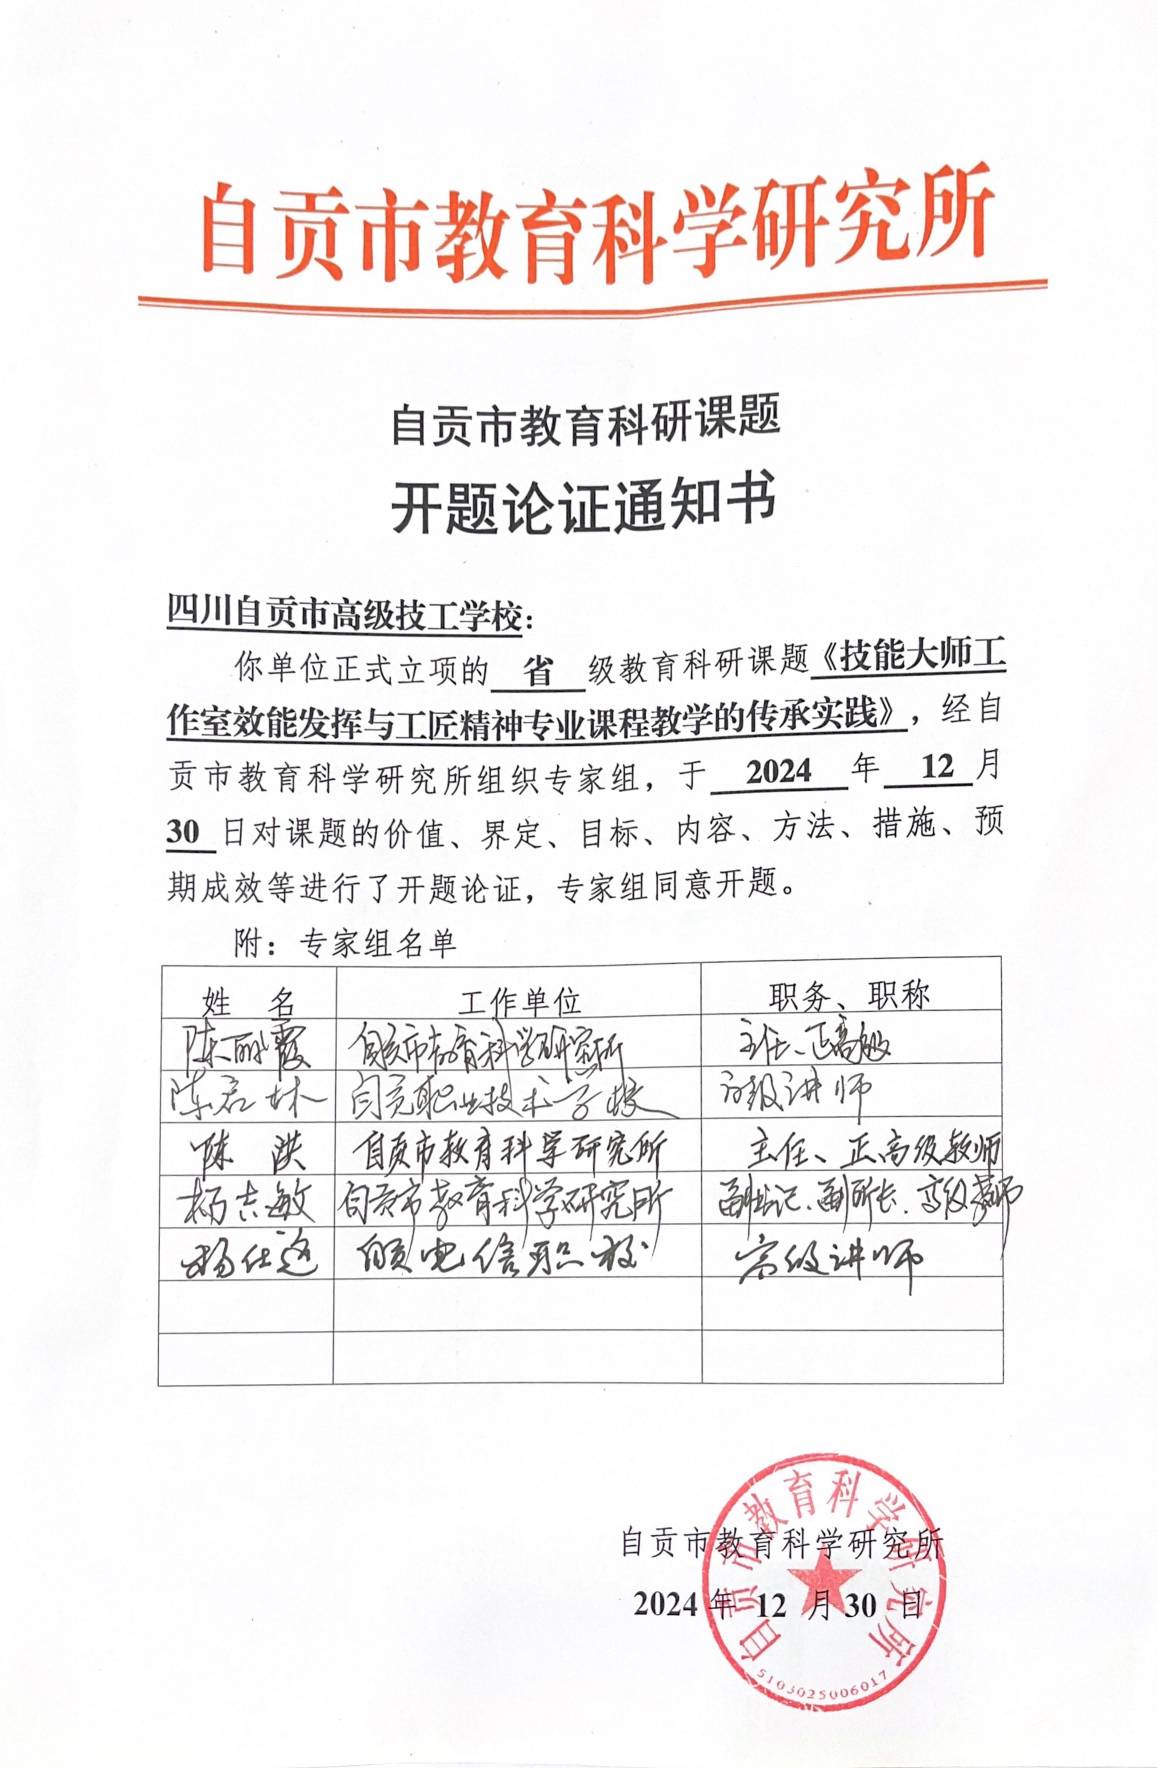 自贡市教育科学研究所
自贡市教育科研课题
开题论证通知书
四川自贡市高级技工学校：
你单位正式立项的 省 级教育科研课题《技能大师工
作室效能发挥与工匠精神专业课程教学的传承实践》，经自
贡市教育科学研究所组织专家组，于 2024 年 12 月
30 日对课题的价值、界定、目标、内容、方法、措施、预
期成效等进行了开题论证，专家组同意开题。
附：专家组名单
姓 名 工作单位 职务、职称
陈丽霞 自贡市教育科学研究所 主任、正高级
陈君林 自贡职业技术学校 高级讲师
陈洪 自贡市教育科学研究所 主任、正高级教师
杨志敏 自贡市教育科学研究所 副书记、副所长、高级教师
杨仕 自贡电信职校 高级讲师
自贡市教育科学研究所
2024 年 12 月 30 日
自贡市教育科学研究所
5103025006017